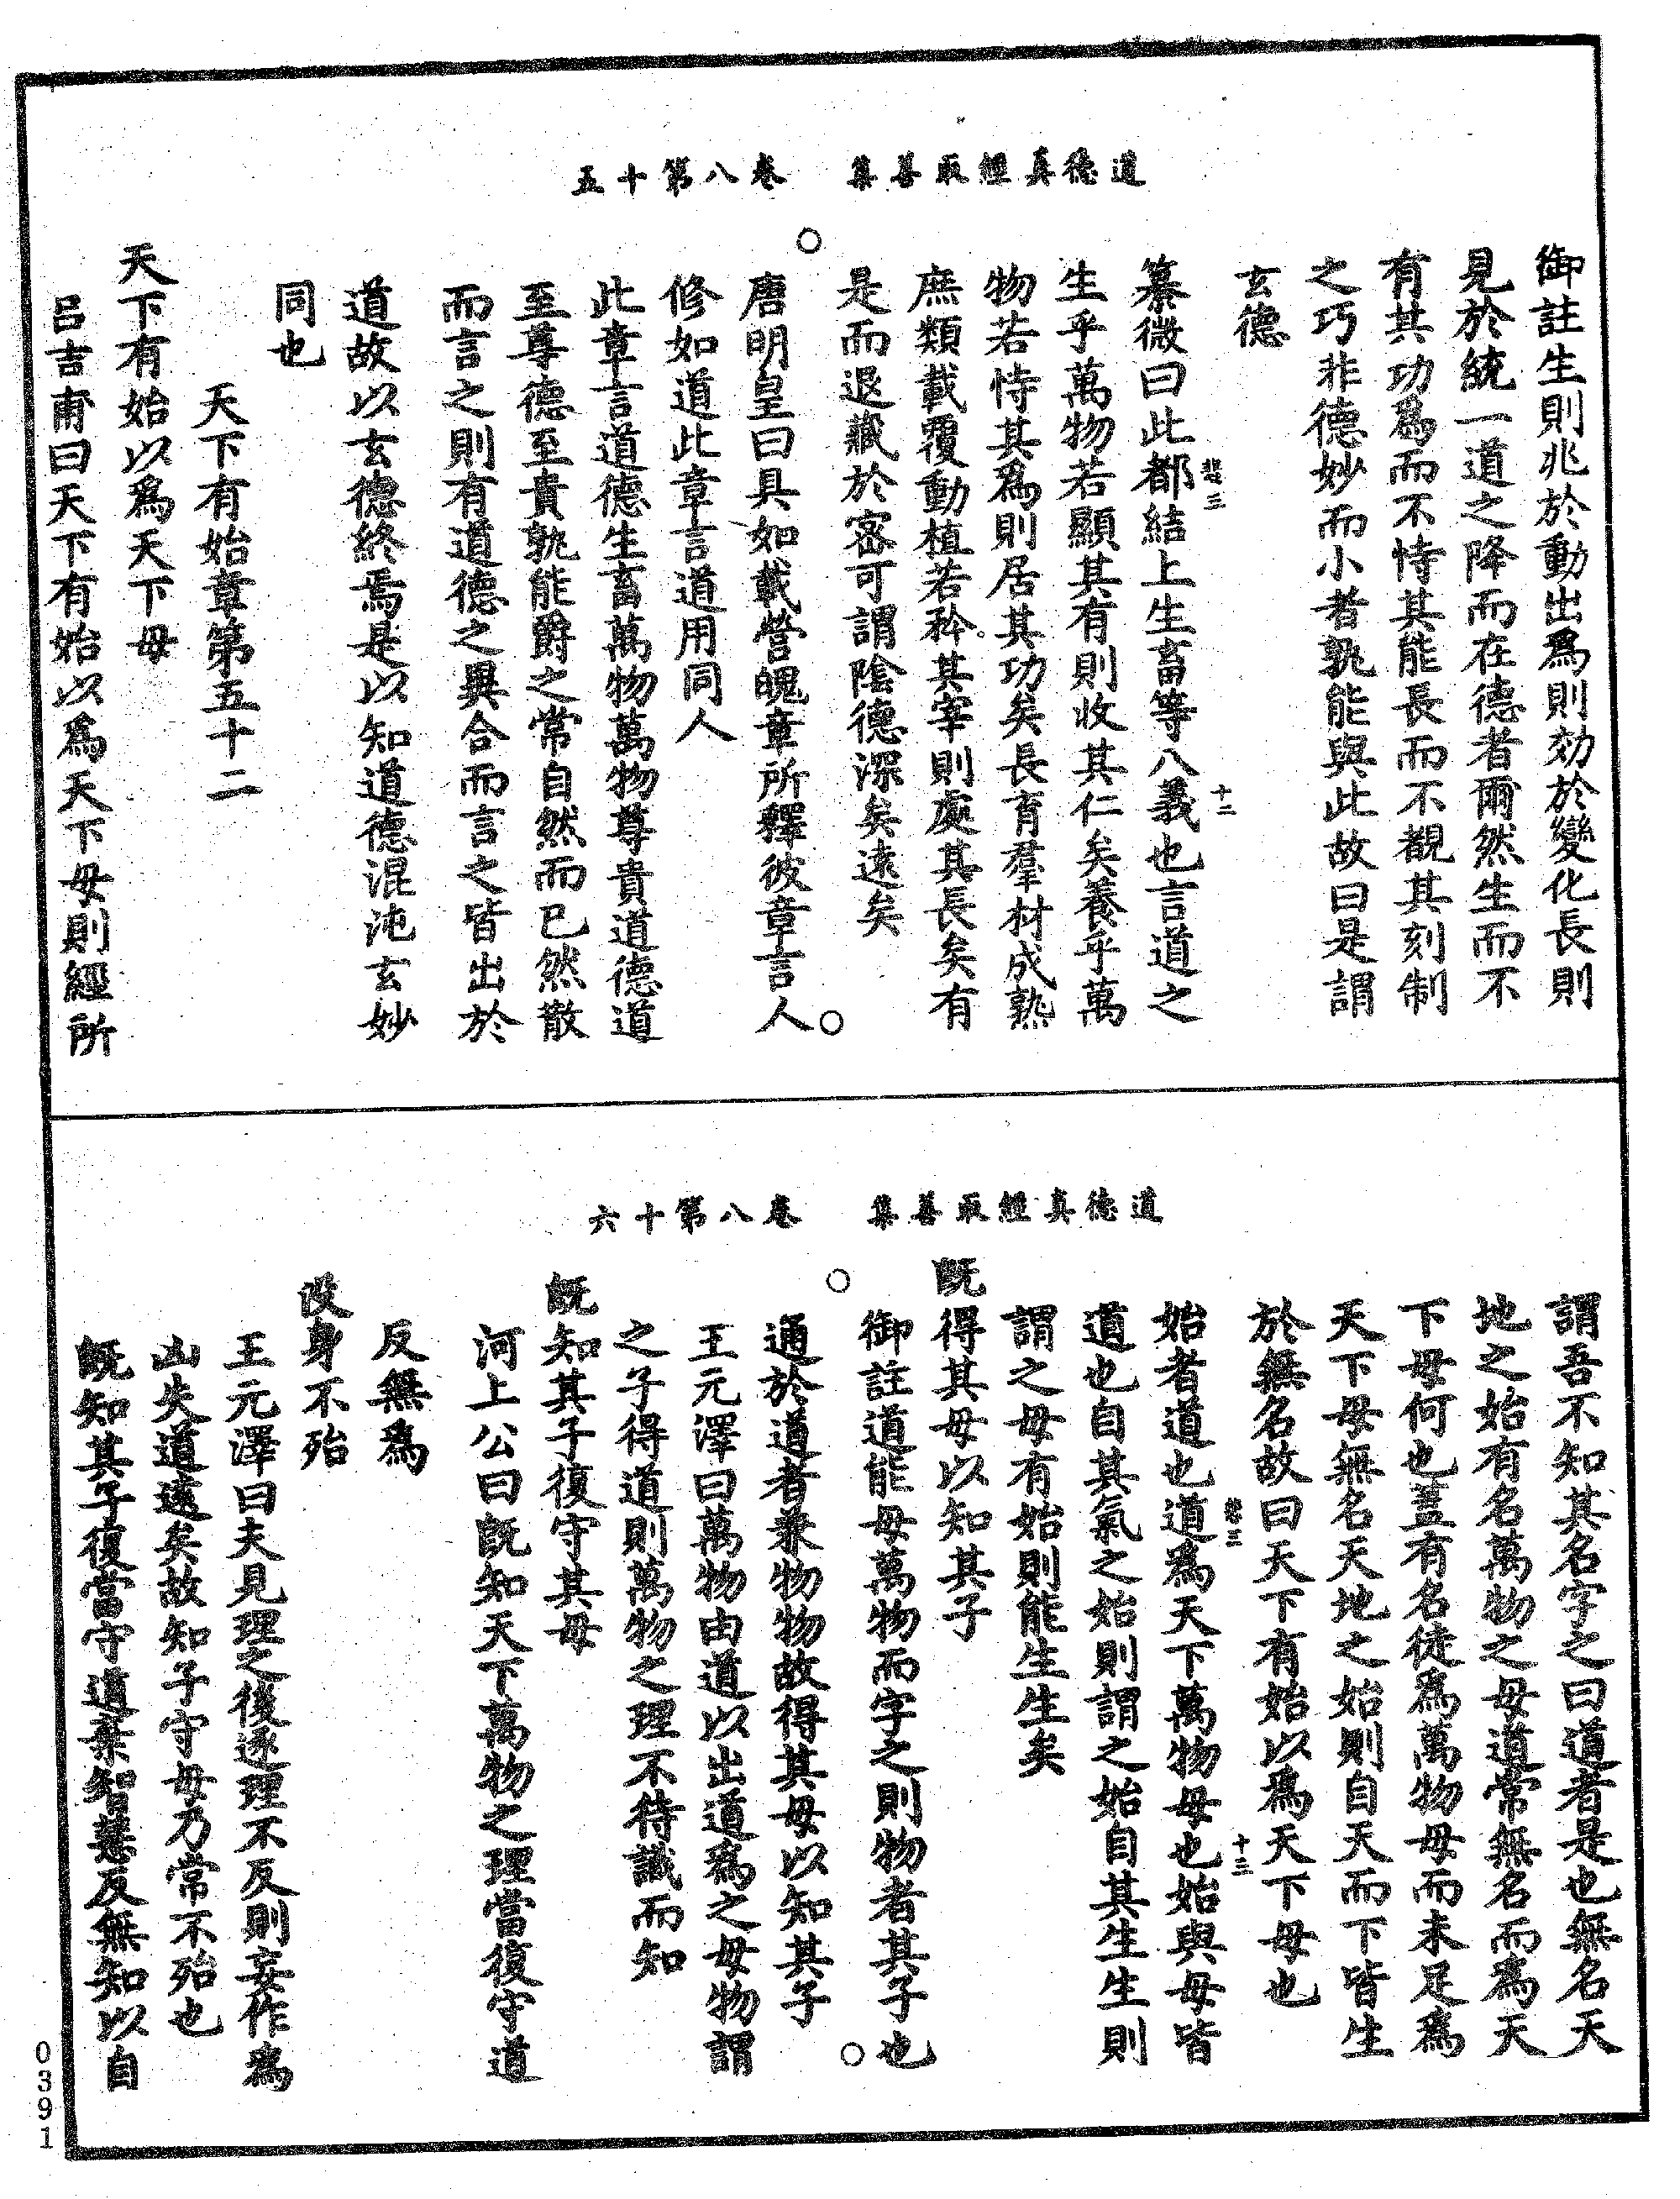 道德真經取善集　卷八第十五
御註生則兆於動出爲則効於變化長則
見於統一道之降而在德者爾然生而不
有其功爲而不恃其能長而不覩其刻制
之巧非德妙而小者孰能與此故曰是謂
玄德
纂微曰此都結上生畜等八義也言道之
生乎萬物若顯其有則收其仁矣養乎萬
物若恃其爲則居其功矣長育羣材成熟
庶類載覆動植若矜其宰則處其長矣有
是而退藏於密可謂陰德深矣遠矣
唐明皇曰具如載營魄章所釋彼章言人
修如道此章言道用同人
此章言道德生畜萬物萬物尊貴道德道
至尊德至貴孰能爵之常自然而已然散
而言之則有道德之異合而言之皆出於
道故以玄德終焉是以知道德混沌玄妙
同也
天下有始章第五十二
天下有始以爲天下母
呂吉甫曰天下有始以爲天下母則經所
道德真經取善集　卷八第十六
謂吾不知其名字之曰道者是也無名天
地之始有名萬物之母道常無名而爲天
下母何也蓋有名徒爲萬物母而未足爲
天下母無名天地之始則自天而下皆生
於無名故曰天下有始以爲天下母也
始者道也道爲天下萬物母也始與母皆
道也自其氣之始則謂之始自其生生則
謂之母有始則能生生矣
既得其母以知其子
御註道能母萬物而字之則物者其子也
通於道者兼物物故得其母以知其子
王元澤曰萬物由道以出道爲之母物謂
之子得道則萬物之理不待識而知
既知其子復守其母
河上公曰既知天下萬物之理當復守道
反無爲
没身不殆
王元澤曰夫見理之後逐理不反則妄作爲
凶失道遠矣故知子守母乃常不殆也
既知其子復當守道棄智慧反無知以自
0391